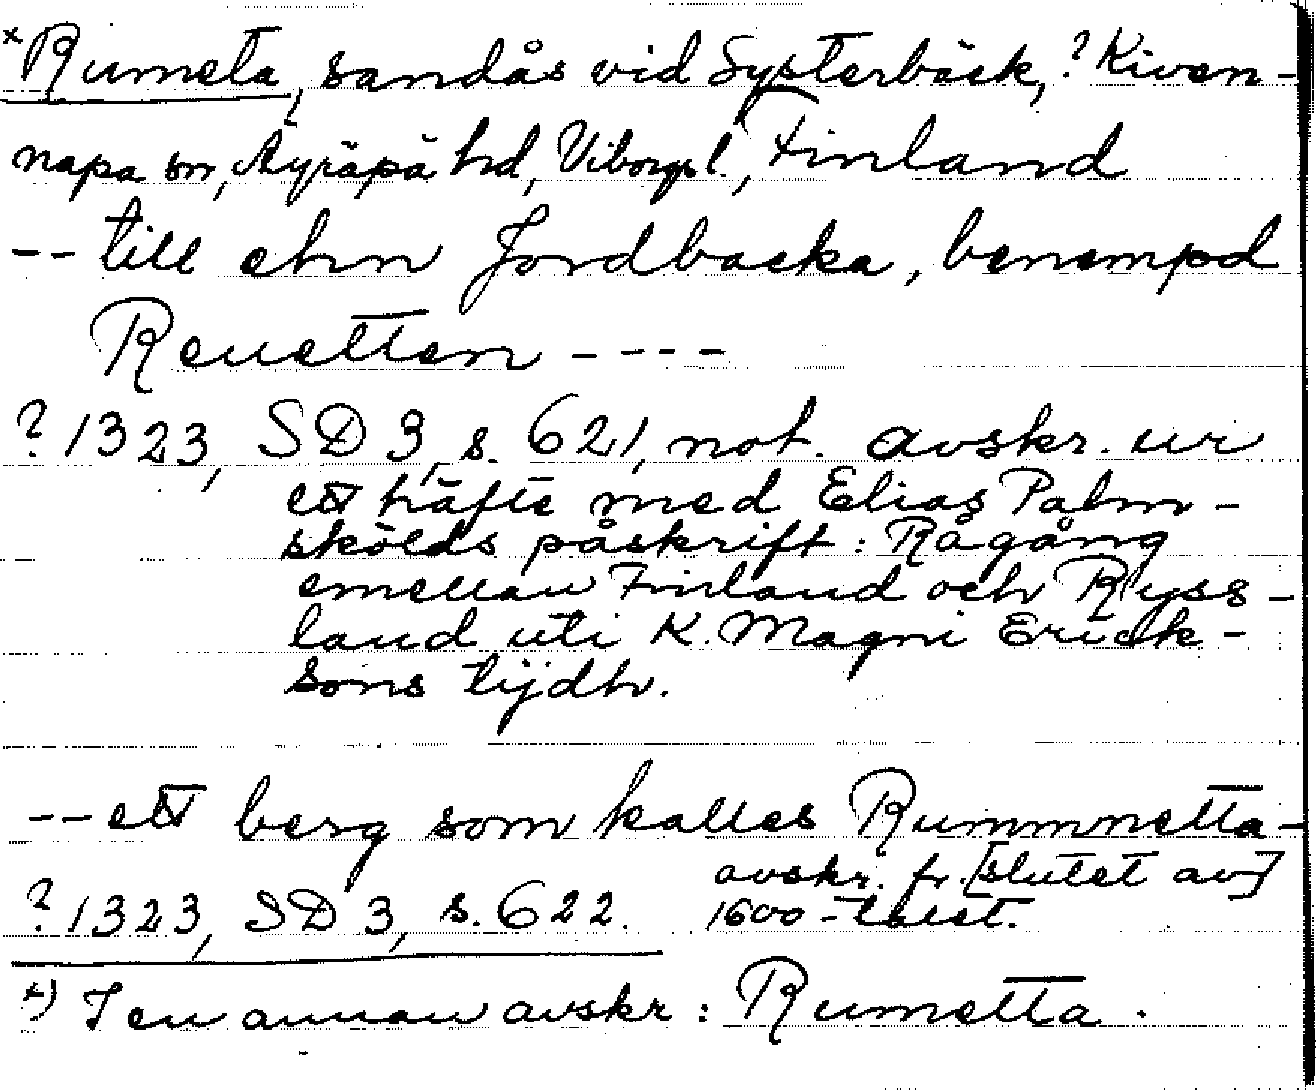 *Rumeta, sandås vid Systerbäck, ? Kiven-
napa sn, Äyräpä hd, Viborgs l., Finland
-- till ehn Jordbacka, benempd
Reuetten ----
? 1323, SD 3, s. 621, not. avskr. ur
ett häfte med Elias Palm-
skölds påskrift: Rågång
emellan Finland och Ryss-
land uti K. Magni Erick-
sons tijdh.
-- ett berg som kalles Rummnetta-
avskr. fr. [slutet av]
? 1323, SD 3, s. 622. 1600-talet.
x) I en annan avskr: Rumetta.